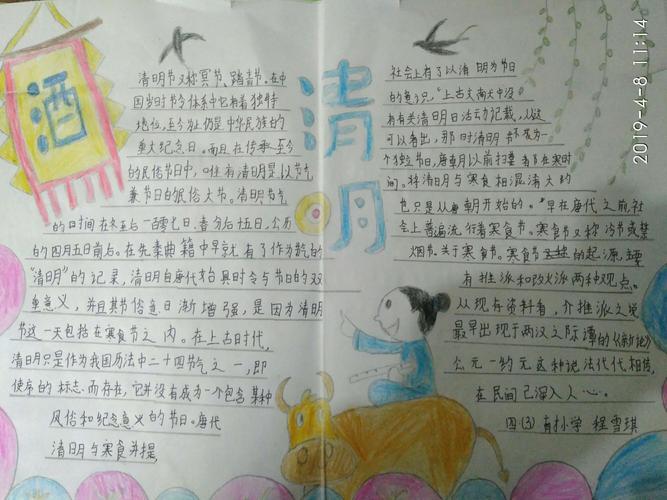 酒
清明
清明节又称冥节、踏青节。在中
国岁时节令体系中它有着独特
地位,至今为止仍是中华民族的
重大纪念日。而且在传承至今
的民俗节日中,唯有清明是以节气
兼节日的民俗大节。清明节气
的时间在冬至后一百零七日,春分后十五日,公历
的四月五日前后。在先秦典籍中早就有了作为节气的
"清明"的记录,清明自唐代始具时令与节日的双
重意义,并且其节俗逐日渐增强,是因为清明
节这一天包括在寒食节之内。在上古时代,
清明只是作为我国历法中二十四节气之一,即
使序的标志而存在,它并没有成为一个包含某种
风俗和纪念意义的节日。唐代
清明与寒食并提,
社会上有了以清明为节日
的
有关清明日活动记载,从这
可以看出,那时清明并不成为一
个独立节日,唐朝以前扫墓多在寒时
间。将清明与寒食相混清大约
也只是从唐朝开始的。"早在唐代之前社
会上普遍流行着寒食节。寒食节又称冷节或禁
烟节。关于寒食节。寒食节的起源,
有推派和改火派两种观点。
从现存资料看,介推派之说
最早出现于两汉之际谭的《新论》
公元一约元这种说法代代相传,
在民间已深入人心。
四·(3) 有小学 程雪琪
2019-4-8 11:14